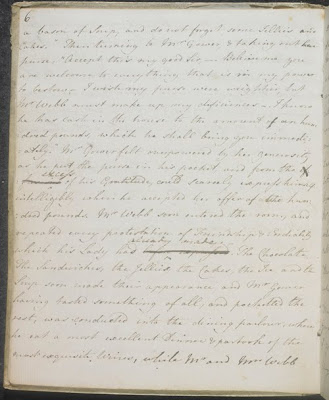 6
a bason of Soup, and do not forget some Jellies and
Cakes." Then turning to Mr Gower, & taking out her
purse, "Accept this my good Sir,— Believe me you
are welcome to everything that is in my power
to bestow;— I wish my purse were weightier, but
Mr Webb must make up my deficiencies— I know
he has cash in the house to the amount of an hun:
dred pounds, which he shall bring you immedi:
ately." Mr Gower felt overpowered by her generosity
as he put the purse in his pocket and from the
excess of his Gratitude, could scarcely express himself
intelligibly, when he accepted her offer of the hun:
dred pounds. Mr Webb soon entered the room, and
repeated every protestation of Friendship & Cordiality
which his Lady had already made. The Chocolate,
The Sandwiches, the Jellies, the Cakes, the Ice and the
Soup soon made their appearance and Mr Gower
having tasted something of all, and pocketted the
rest, was conducted into the dining parlour, where
he eat a most excellent Dinner & partook of the
most exquisite Wines, while Mr and Mrs Webb